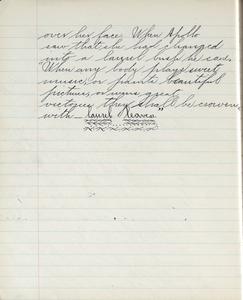 over her face. When Apollo
saw that she had changed
into a laurel bush he said,
"When any body plays sweet
music, or paints beautiful
pictures, or wins great
victories they shall be crowned
with laurel leaves."